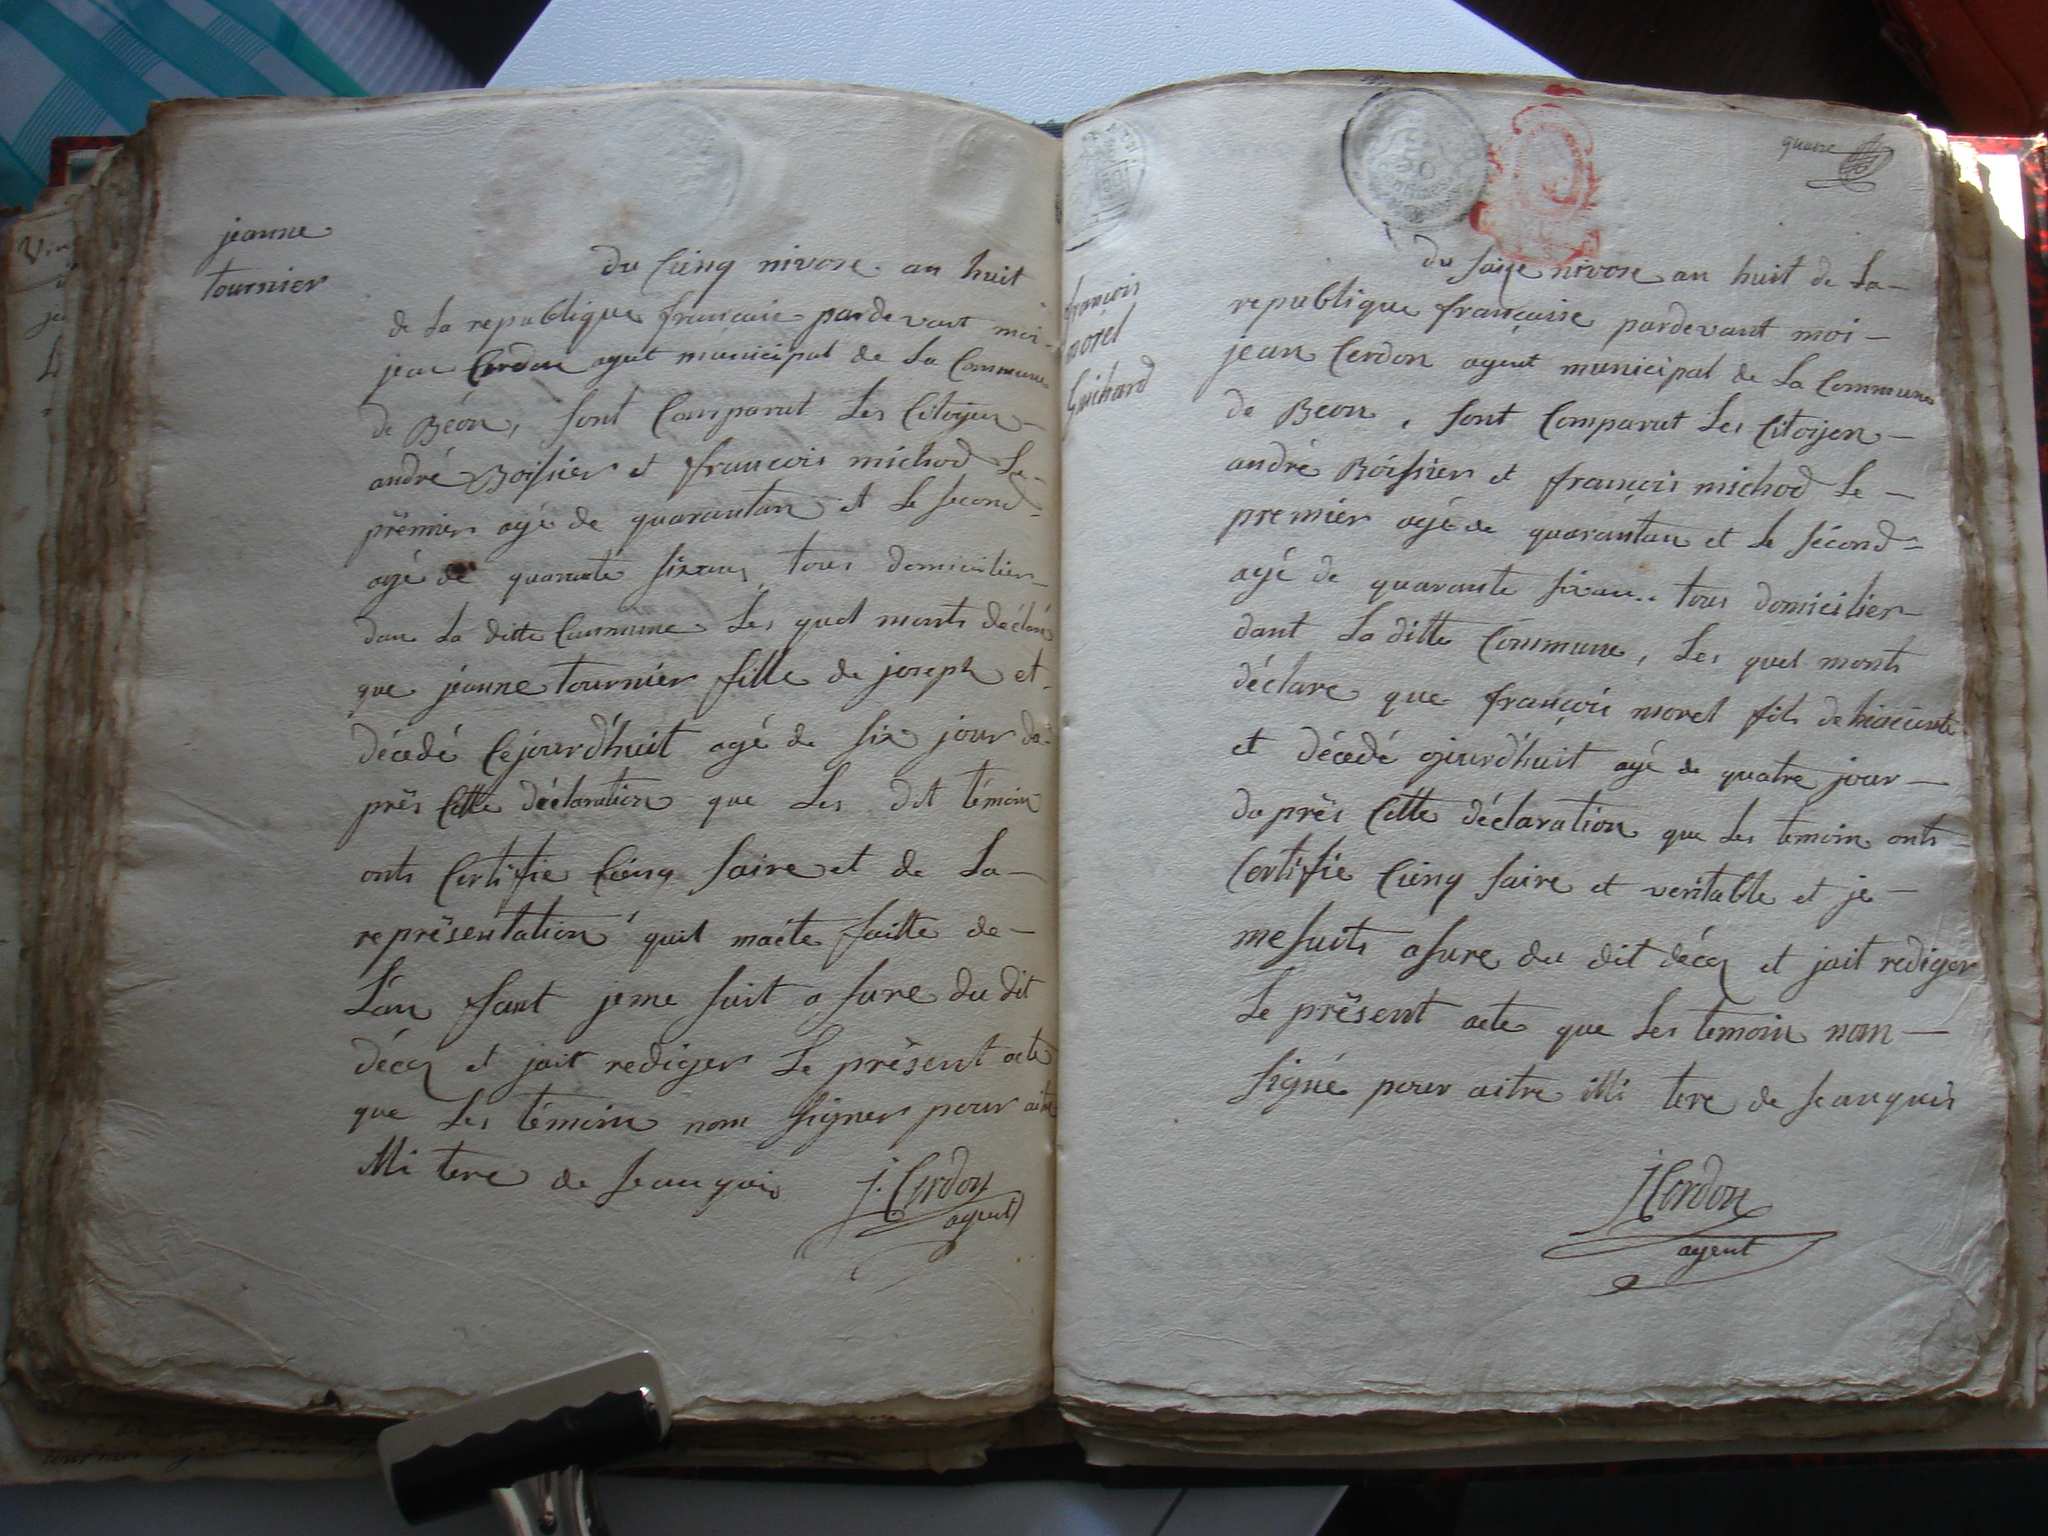 jeanne
tournier
du Cinq nivose an huit
de La republique francaise pardevant moi
jean Cerdon agent municipal de La Commune
de Béon, sont Comparut Les Citoyen
andré Boissier et francois michod Le
prémier agé de quarantan et Le second
agé de quarante sixans tous domicilier
dans La ditte Commune Les quel monts déclaré
que jéanne tournier fille de joseph et
décedé Cejourd'huit agé de six jour da
près Cette déclaration que Les dit témoin
onts Certifie Cinq saire et de La
représentation quil maite faitte de
Lan fant jeme suit a sure du dit
décer et jait rediger Le présent acte
que Les témoin nom signer pour aitre
illi tere de seauquis
j. Cerdon
agent
quatre
françois
morel
Guichard
du saize nivose an huit de La
republique française pardevant moi
jean Cerdon agent municipal de La Commune
de Beon, sont Comparut Les Citoijen
andré Boissier et françois michod Le
premier agé de quarantan et Le sécond
agé de quarante sixan.. tous domicilier
dant La ditte Commune, Les quel monts
déclare que françois morel fils de hiacinte
et décedé ojiurd'huit agé de quatre jour
da près Cette déclaration que Les temoin onts
Certifie Cinq saire et veritable et je
me suits a sure du dit décer et jait rediger
Le présent acte que Les temoin nom
signé pour aitre illi tere de seauquis
J Cerdon
agent